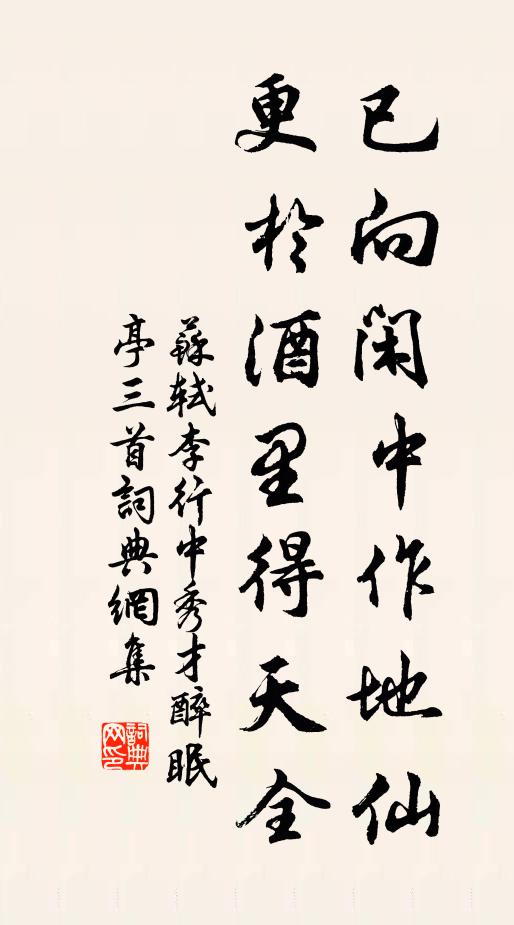 已向闲中作地仙
更於酒里得天全
蘇軾李行中秀才醉眠
亭三首詞典網集
詞典网印